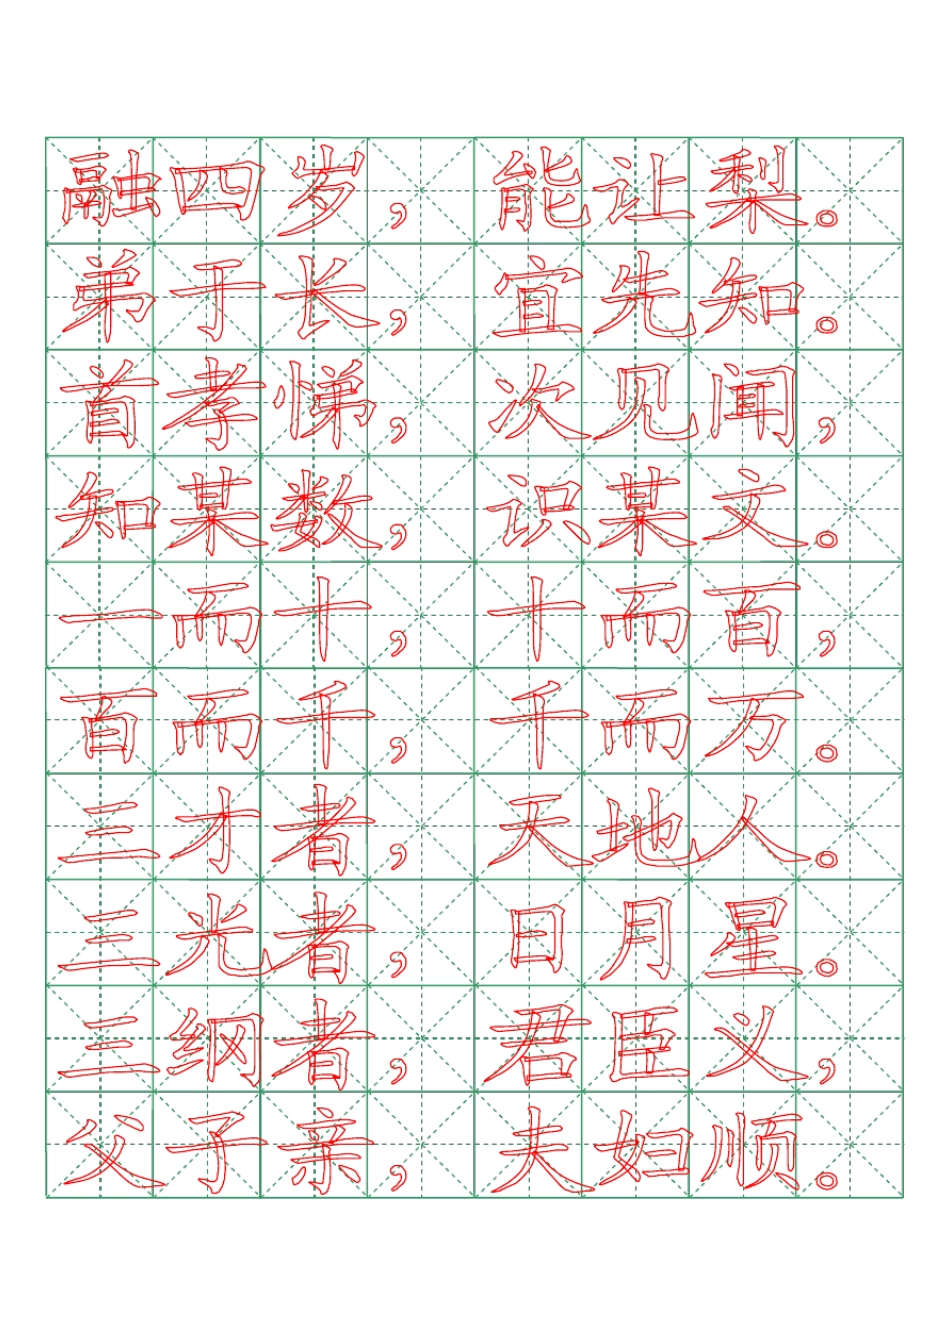 融四岁，能让梨。
弟于长，宜先知。
首孝悌，次见闻，
知某数，识某文。
一而十，十而百，
百而千，千而万。
三才者，天地人。
三光者，日月星。
三纲者，君臣义，
父子亲，夫妇顺。